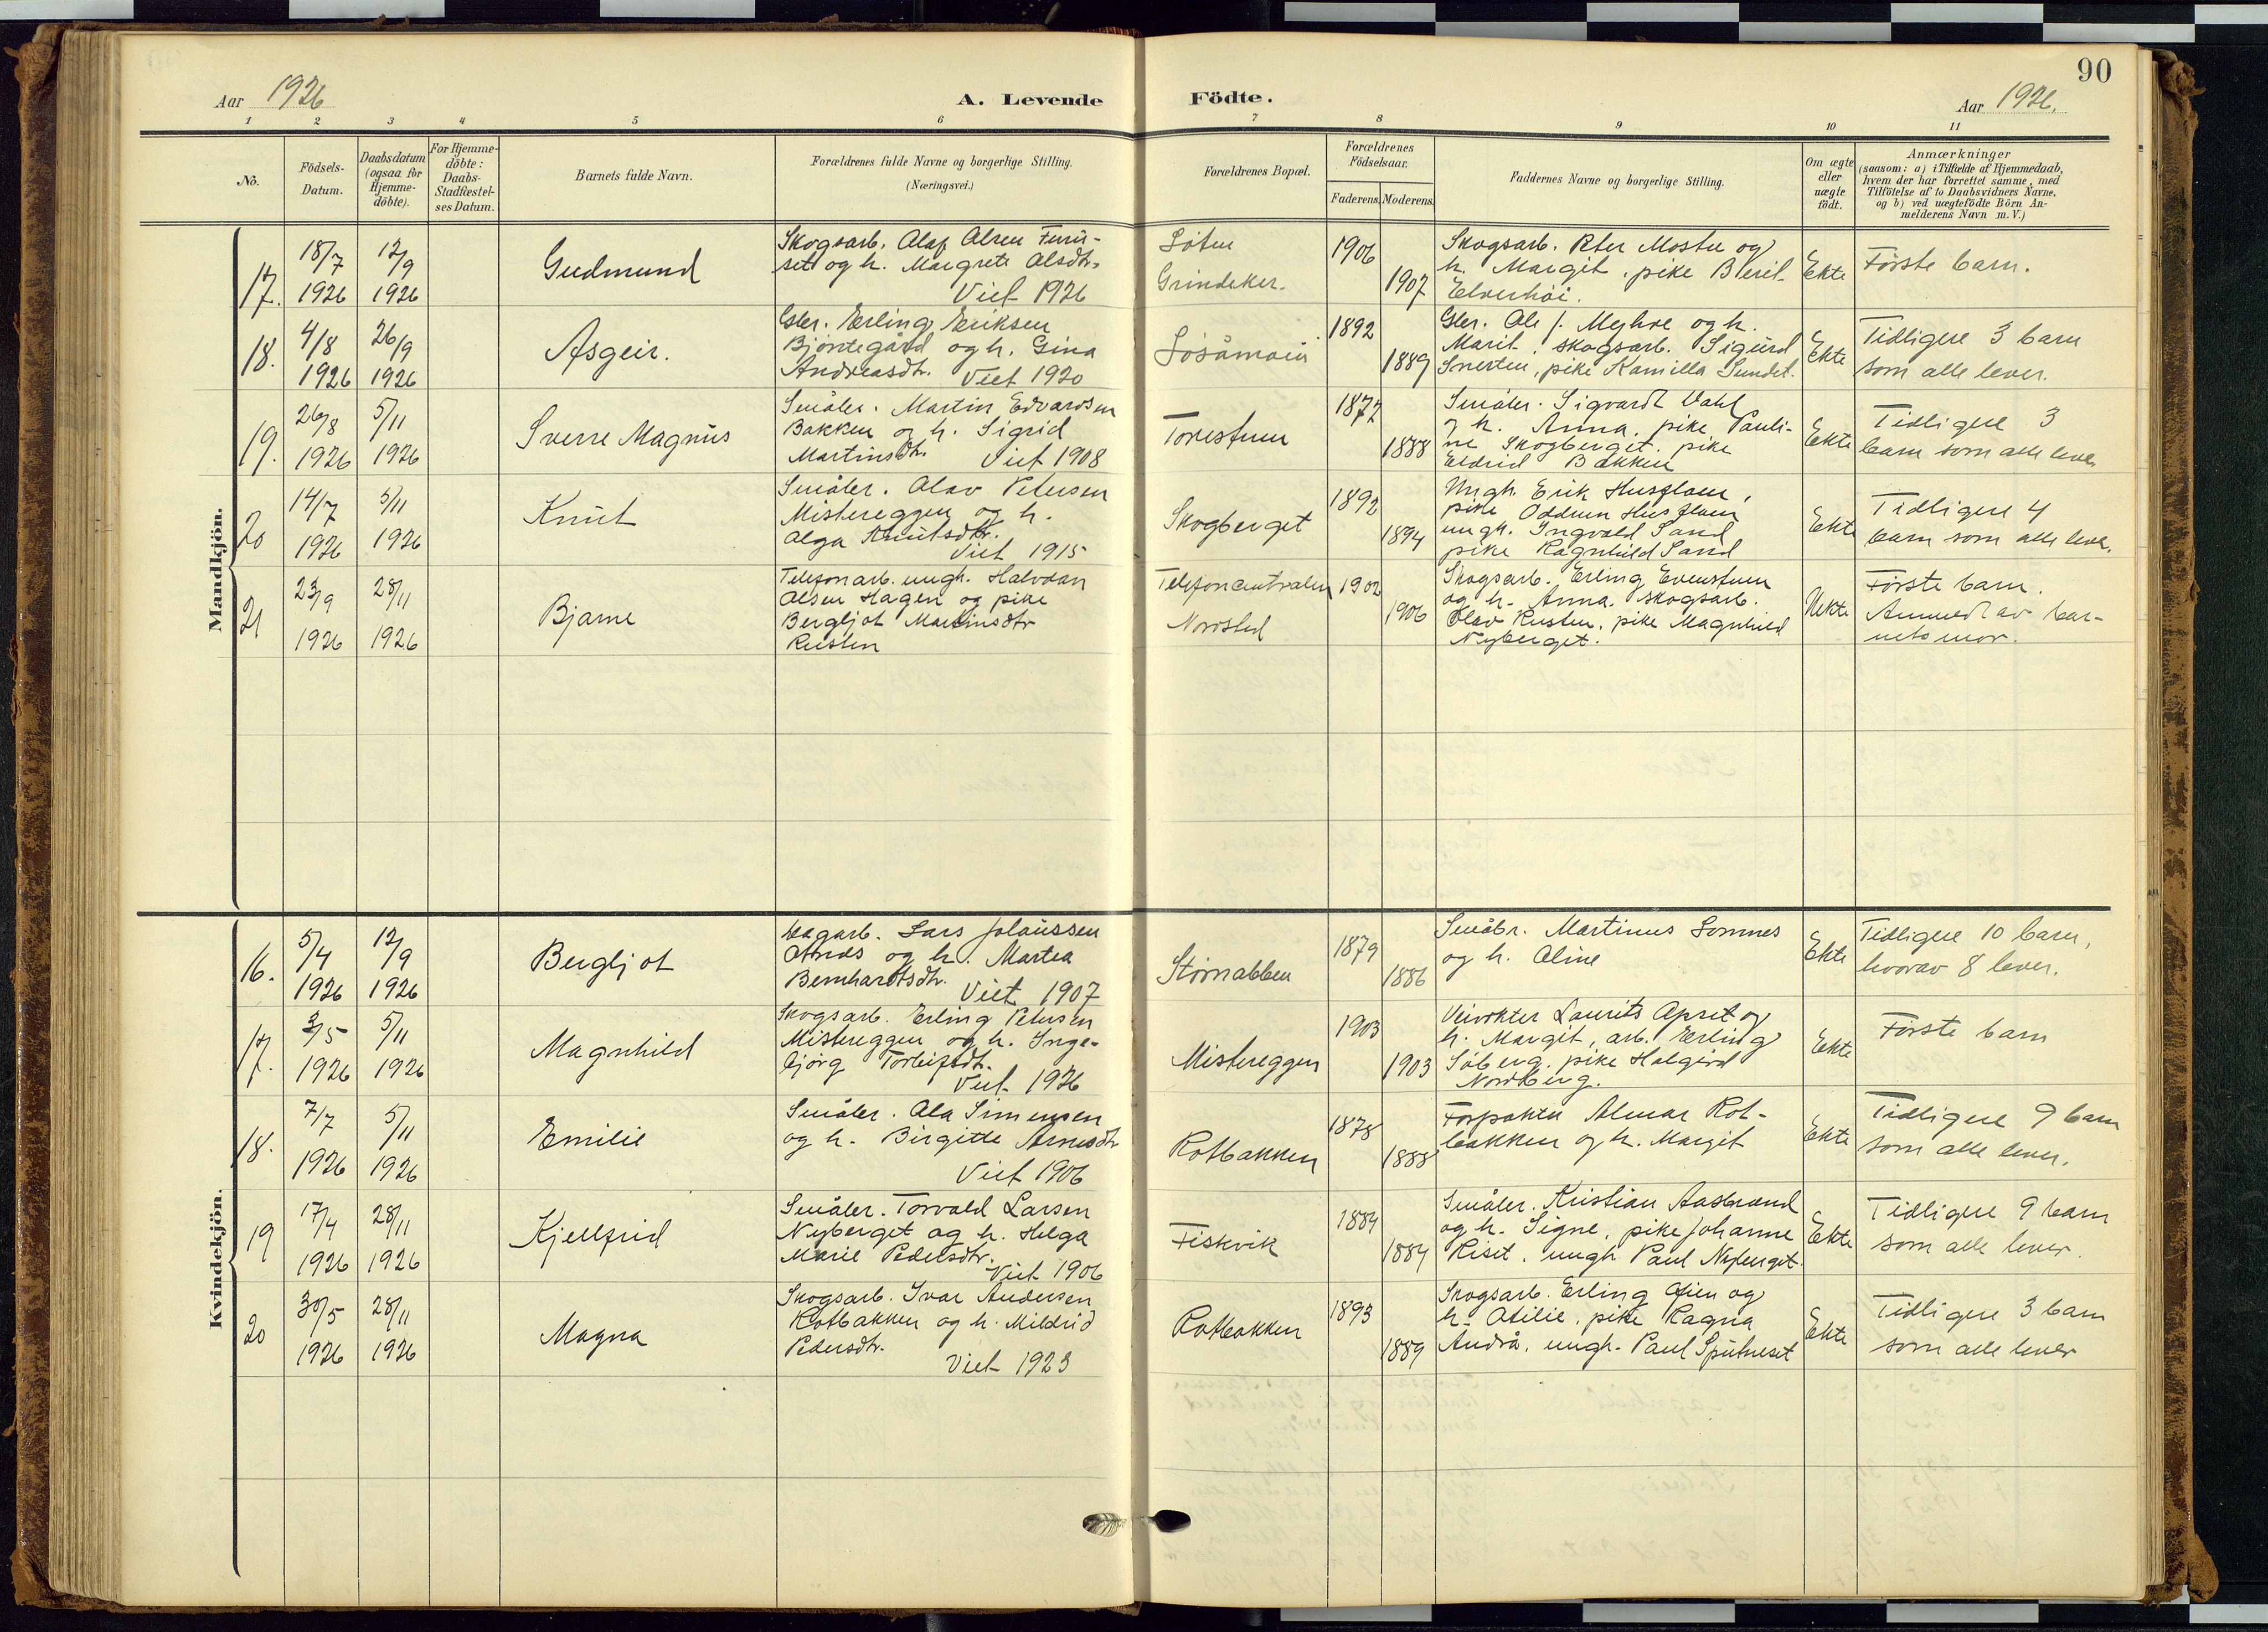 90
Aar 1926
A. Levende
Födte.
Aar 1926.
1 2 3 4 5 6 7 8 9 10 11
No.
Födsels-Datum.
Daabsdatum (ogsaa for Hjemme-döbte).
For Hjemme-döbte: Daabs-Stadfæstel-ses Datum.
Barnets fulde Navn.
Forældrenes fulde Navne og borgerlige Stilling.
(Næringsvei.)
Forældrenes Bopæl.
Forældrenes Födselsaar.
Faderens. Moderens.
Faddernes Navne og borgerlige Stilling.
Om ægte eller uægte födt.
Anmærkninger
(saasom: a) i Tilfælde af Hjemmedaab,
hvem der har forrettet samme, med
Tilföielse af to Daabsvidners Navne,
og b) ved uægtefödte Börn An-
melderens Navn m. V.)
Mandkjön.
17.
18/7 1926
12/9 1926
Gudmund
Skogsarb. Olaf Olsen Furu-
set og h. Margrete Olsdtr.
Viet 1926
Löten
Grindeker.
1906
1907
Skogsarb. Peter Mostu og
h. Margit, pike Beril
Elverhöi.
Ekte
Förste barn.
18.
4/8 1926
26/9 1926
Asgeir.
Gbr. Erling Eriksen
Bjöntegård og h. Gina
Andreasdtr. Viet 1920
Losåmoen
1892
1889
Gbr. Ole J. Mejhoe og h.
Marit, skogsarb. Sigurd
Snerten, pike Kamilla Sundet.
Ekte
Tidligere 3 barn
som alle lever.
19.
26/8 1926
5/11 1926
Sverre Magnus
Småbr. Martin Edvardsen
Bakken og h. Sigrid
Martinsdtr. Viet 1908
Torrestuen
1877
1888
Småbr. Sigvardt Dahl
og h. Anna, pike Pauli-
ne Skogberget, pike
Eldrid Bakken
Ekte
Tidligere 3
barn som alle lever
20
14/7 1926
5/11 1926
Knut
Småbr. Olav Petersen
Mistereggen og h.
Olga Knutsdtr.
Viet 1915
Skogberget
1892
1894
Ungk. Erik Husfloen,
pike Oddrun Husfloen
ungk. Ingvald Sand
pike Ragnhild Sand
Ekte
Tidligere 4
barn som alle lever.
21
23/9 1926
28/11 1926
Bjarne
Telefonarb. ungk. Halvdan
Olsen Hagen og pike
Bergljot Martinsdtr
Rusten
Telefoncentralen
Nordstad
1902
1906
Skogsarb. Erling Evenstuen
og h. Anna, skogsarb.
Olav Rusten, pike Magnhild
Nyberget.
Uekte
Förste barn.
Anmedt av bar-
nets mor.
Kvindekjön.
16.
5/4 1926
12/9 1926
Bergljot
Dagarb. Lars Johanssen
Atneos og h. Martea
Bernhardtsdtr.
Viet 1907
Störnabben
1879
1886
Småbr. Martinus Lomnes
og h. Oline
Ekte
Tidligere 10 barn,
hvorav 8 lever.
17.
3/5 1926
5/11 1926
Magnhild
Skogsarb. Erling Petersen
Mistereggen og h. Inge-
björg Torleifsdtr.
Viet 1926
Mistereggen
1903
1903
Veivokter Laurits Opset og
h. Margit, arb. Erling
Söberg, pike Halgerd
Nordberg.
Ekte
Förste barn
18.
7/7 1926
5/11 1926
Emilie
Småbr. Ola Simensen
og h. Birgitte Arnesdtr
Viet 1906
Rotbakken
1878
1888
Forpakter Almar Rot-
bakken og h. Margit
Ekte
Tidligere 9 barn
som alle lever.
19
17/4 1926
28/11 1926
Kjellfrid
Småbr. Torvald Larsen
Nyberget og h. Helga
Marie Pedersdtr.
Viet 1906
Fiskvik
1884
1884
Småbr. Kristian Aasbrænd
og h. Signe, pike Johanne
Riset, ungk. Paul Nyberget.
Ekte
Tidligere 9 barn
som alle lever.
20
30/5 1926
28/11 1926
Magna
Skogsarb. Ivar Andersen
Rotbakken og h. Mildrid
Pedersdtr.
Viet 1923
Rotbakken
1893
1889
Skogsarb. Erling Öien og
h. Otilie, pike Ragna
Andrå, ungk. Paul Sputneset
Ekte
Tidligere 3 barn
som alle lever